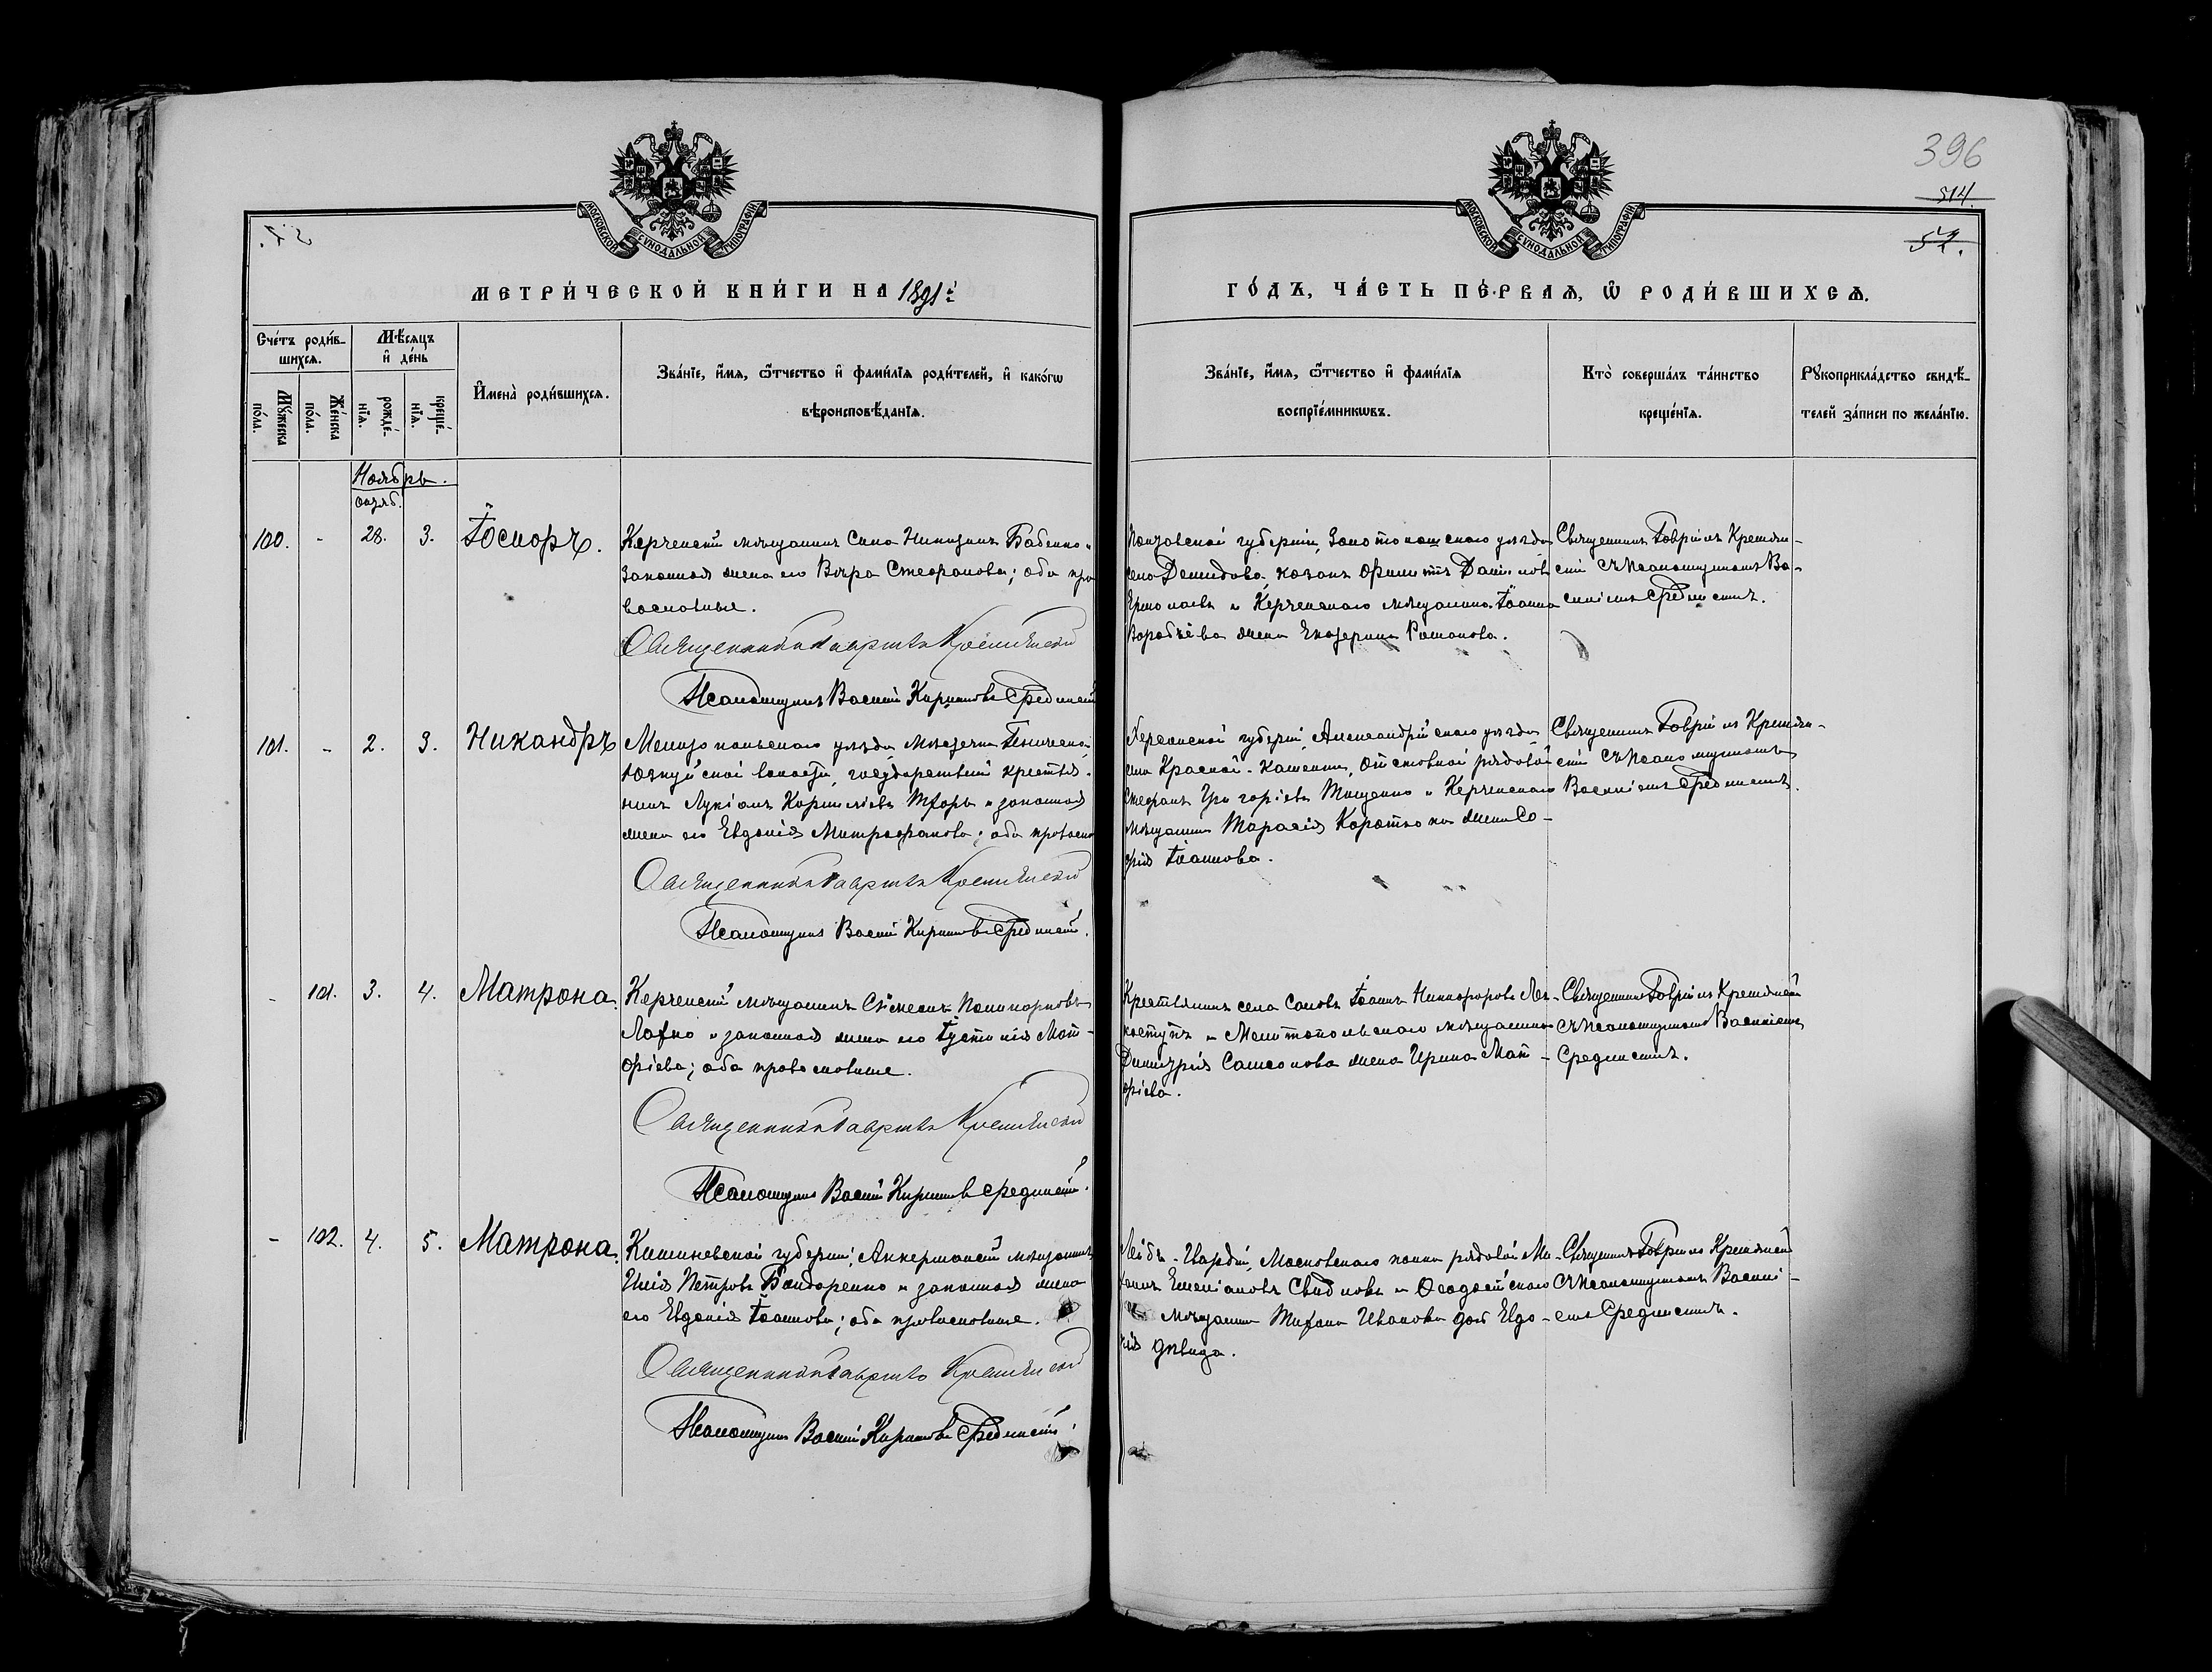 396
514.
52.
МОСКОВСКОЙ СѴНОДАЛЬНОЙ ТИПОГРАФІИ
МОСКОВСКОЙ СѴНОДАЛЬНОЙ ТИПОГРАФІИ
МЕТРИ́ЧЕСКОЙ КНИ́ГИ НА 1891й
ГО́ДЪ, ЧА́СТЬ ПЕ́РВАЯ, Ѽ РОДИ́ВШИХСЯ.
Сче́тъ роди́в-
шихся.
Мꙋжеска
по́ла.
Же́нска
по́ла.
Мѣ́сяцъ
и҆ де́нь
рожде́-
нїя.
креще́-
нїя.
И҆мена̀ роди́вшихся.
Зва́нїе, и҆́мя, ѻ҆́тчество и҆ фами́лїя роди́телей, и҆ како́гѡ
вѣроисповѣ́данїя.
Зва́нїе, и҆́мя, ѻ҆́тчество и҆ фами́лїя
воспрїе́мникѡвъ.
Кто̀ соверша́лъ та́инство
креще́нїя.
Рꙋкоприкла́дство свидѣ́-
телей за́писи по жела́нїю.
Ноябрь.
Октяб.
100. - 28. 3. Іосифъ.
Керченскій мѣщанинъ Сила Никитинъ Бабенко и
законная жена его Вѣра Стефанова; оба пра
вославные.
Священникъ Гавріилъ Кремянскій
Псаломщикъ Василій Кирилловъ Срединскій
Полтавской губерніи, Золотоношскаго уѣзда
села Демидова, казакъ Филиппъ Даніиловъ
Ермолаевъ и Керченскаго мѣщанина Іоанна
Воробьева жена Екатерина Романова.
Священникъ Гавріилъ Кремян-
скій съ псаломщикомъ Ва-
силіемъ Срединскимъ.
101. - 2. 3. Никандръ
Мелитопольскаго уѣзда, мѣстечка Геническа,
государственный крестья-
нинъ Лукіанъ Корниліевъ и законная
жена его Евдокія Митрофанова; оба правосла
Священникъ Гавріилъ Кремянскій
Псаломщикъ Василій Кирилловъ Срединскій.
Херсонской губерніи, Александрійскаго уѣзда
села Красной-Каменки, отставной рядовой
Стефанъ Григоріевъ Тищенко и Керченскаго
мѣщанина Тарасія жена Со-
фія Іоаннова.
Священникъ Гавріилъ Кремян-
скій съ псаломщикомъ
Василіемъ Срединскимъ.
- 101. 3. 4. Матрона.
Керченскій мѣщанинъ Сѵмеонъ Поликарповъ
Лахно и законная жена его Іустинія Мат-
фіева; оба православные.
Священникъ Гавріилъ Кремянскій
Псаломщикъ Василій Кирилловъ Срединскій.
Крестьянинъ села Іоаннъ Никифоровъ
и Мелитопольскаго мѣщанина
Димитрія Самсонова жена Ирина Мат-
фіева.
Священникъ Гавріилъ Кремянскій
съ псаломщикомъ Василіемъ
Срединскимъ.
- 102. 4. 5. Матрона.
Кишиневской губерніи, Аккерманскій мѣщанинъ
Илія Петровъ Бондаренко и законная жена
его Евдокія Іоаннова; оба православные.
Священникъ Гавріилъ Кремянскій
Псаломщикъ Василій Кирилловъ Срединскій.
Лейбъ-Гвардіи, Московскаго полка рядовой Ми-
хаилъ Емеліановъ и Ѳеодосійскаго
мѣщанина Ивановa дочь Евдо-
кія дѣвица.
Священникъ Гавріилъ Кремянскій
съ псаломщикомъ Василі-
емъ Срединскимъ.